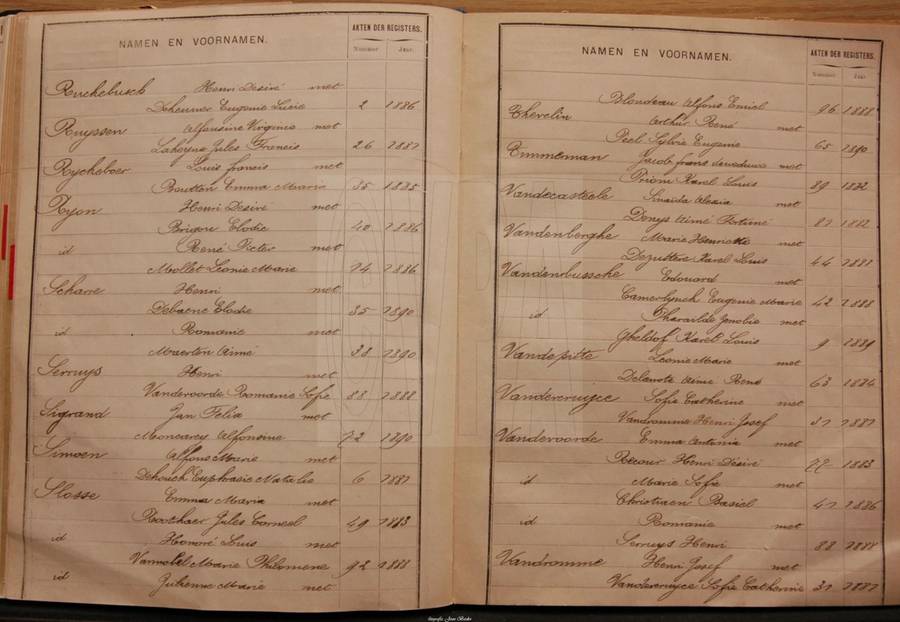 NAMEN EN VOORNAMEN. AKTEN DER REGISTERS.
Nummer Jaar
Henri Désiré met
Eugenie Lucie 2 1886
Ruyssen Alfonsine Virginie met
Jules Francis 26 1887
Ryckeboer Louis francis met
Boutton Emma Marie 35 1885
Ryon Henri Désiré met
Brigou Elodie 40 1886
id René Pieter met
Mollet Leonie Marie 74 1886
Schare Henri met
Debaene Elodie 35 1890
id Romanie met
Maerten Aimé 38 1890
Serruys Henri met
Vandevoorde Romanie Sofie 88 1888
Sigrand Jan Felix met
Moncarey Alfonsine 72 1890
Simoen Alfons Marie met
Dehouck Euphrasie Natalie 6 1887
Slosse Emma Maria met
Roothaer Jules Corneel 49 1883
id Honoré Louis met
Marie Philomene 92 1888
id Julienne Marie met
NAMEN EN VOORNAMEN. AKTEN DER REGISTERS.
Nummer Jaar
Blondeau Alfons Emiel 96 1888
Thevelin Arthur René met
Peel Sylvie Eugenie 65 1890
Timmerman Jacob frans met
Priem Karel Louis 89 1882
Vandecasteele Sinaïda Alexia met
Denys Aimé Fortuné 81 1882
Vandenberghe Marie Henriette met
Dezutter Karel Louis 44 1881
Vandenbussche Edouard met
Camerlynck Eugenie Marie 42 1888
id Pharaïlde Zenobie met
Gheldof Karel Louis 9 1889
Vandepitte Leonie Marie met
Delanote Aimé René 63 1884
Vandercruyce Sofie Catherine met
Vandromme Henri Josef 31 1887
Vandevoorde Emma Antonia met
Recour Henri Désiré 77 1883
id Marie Sofie met
Christiaen Basiel 41 1886
id Romanie met
Serruys Henri 88 1888
Vandromme Henri Josef met
Vandercruyce Sofie Catherine 31 1887